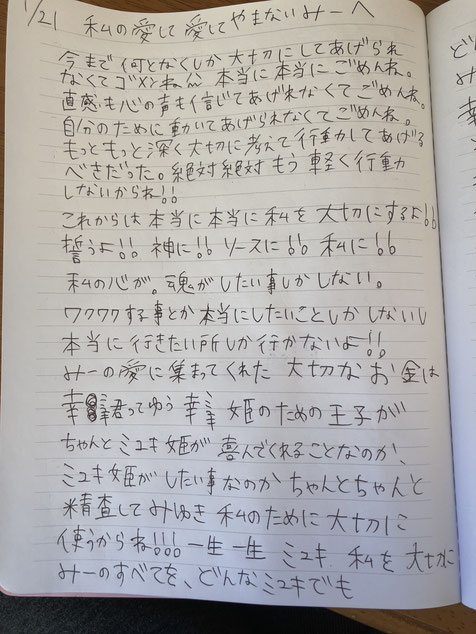 1/21 私の愛して愛してやまないみーへ
今まで何となくしか大切にしてあげられ
なくてゴメンね^^ 本当に本当にごめんね。
直感も心の声も信じてあげれなくてごめんね。
自分のために動いてあげられなくてごめんね。
もっともっと深く大切に考えて行動してあげる
べきだった。絶対絶対もう軽く行動
しないからね!!
これからは本当に本当に私を大切にするよ!!
誓うよ!! 神に!! ソースに!! 私に!!
私の心が。魂がしたい事しかしない。
ワクワクする事とか本当にしたいことしかしないし
本当に行きたい所しか行かないよ!!
みーの愛に集まってくれた 大切なお金は
幸 君ってゆう幸 姫のための王子が
ちゃんとミユキ姫が喜んでくれることなのか、
ミユキ姫がしたい事なのかちゃんとちゃんと
精査してみゆき 私のために大切に
使うからね!!! 一生一生 ミユキ 私を大切に
みーのすべてを、どんなミユキでも